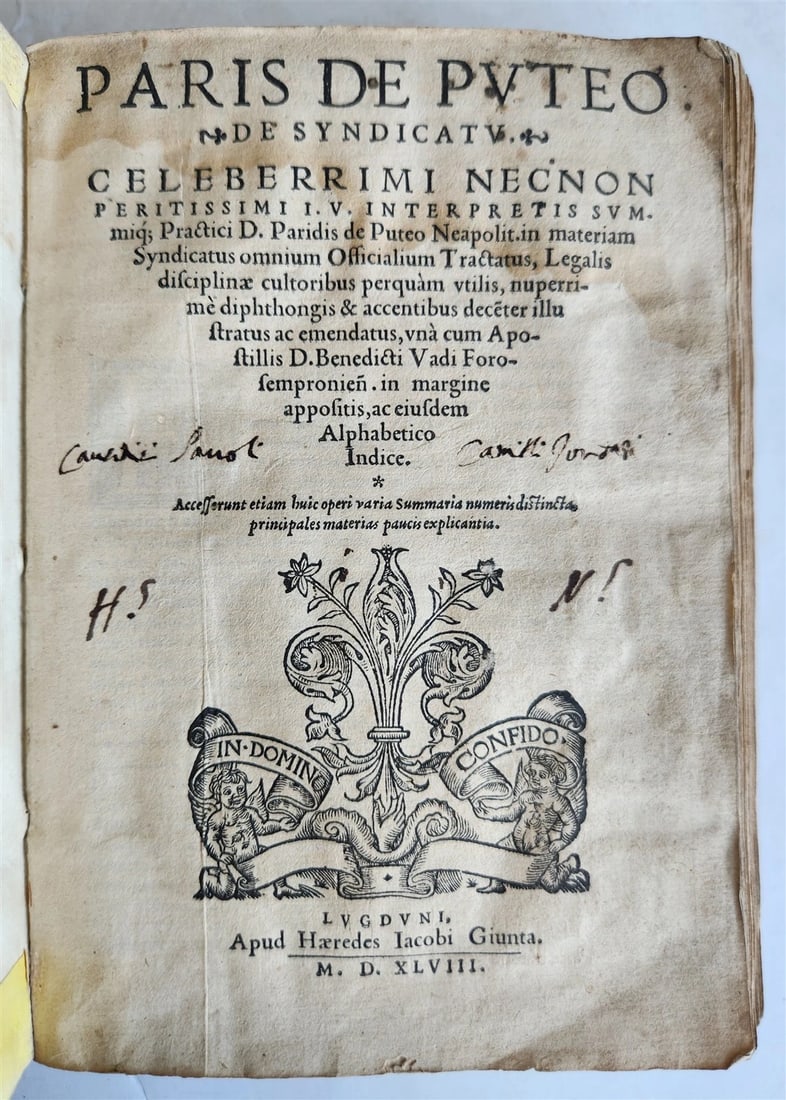 PARIS DE PVTEO.
DE SYNDICATV.
CELEBERRIMI NECNON
PERITISSIMI I. V. INTERPRETIS SVM-
miq́; Practici D. Paridis de Puteo Neapolit. in materiam
Syndicatus omnium Officialium Tractatus, Legalis
diſciplinæ cultoribus perquàm vtilis, nuperri-
mè diphthongis & accentibus decẽter illu
ſtratus ac emendatus, vnà cum Apo-
ſtillis D. Benedicti Vadi Foro-
ſempronieñ. in margine
appoſitis, ac eiuſdem
Alphabetico
Indice.
*
Acceſſerunt etiam huic operi varia Summaria numeris diſtincta,
principales materias paucis explicantia.
H. S.
N. S.
IN·DOMINO
CONFIDO·
LVGDVNI,
Apud Hæredes Iacobi Giunta.
M. D. XLVIII.